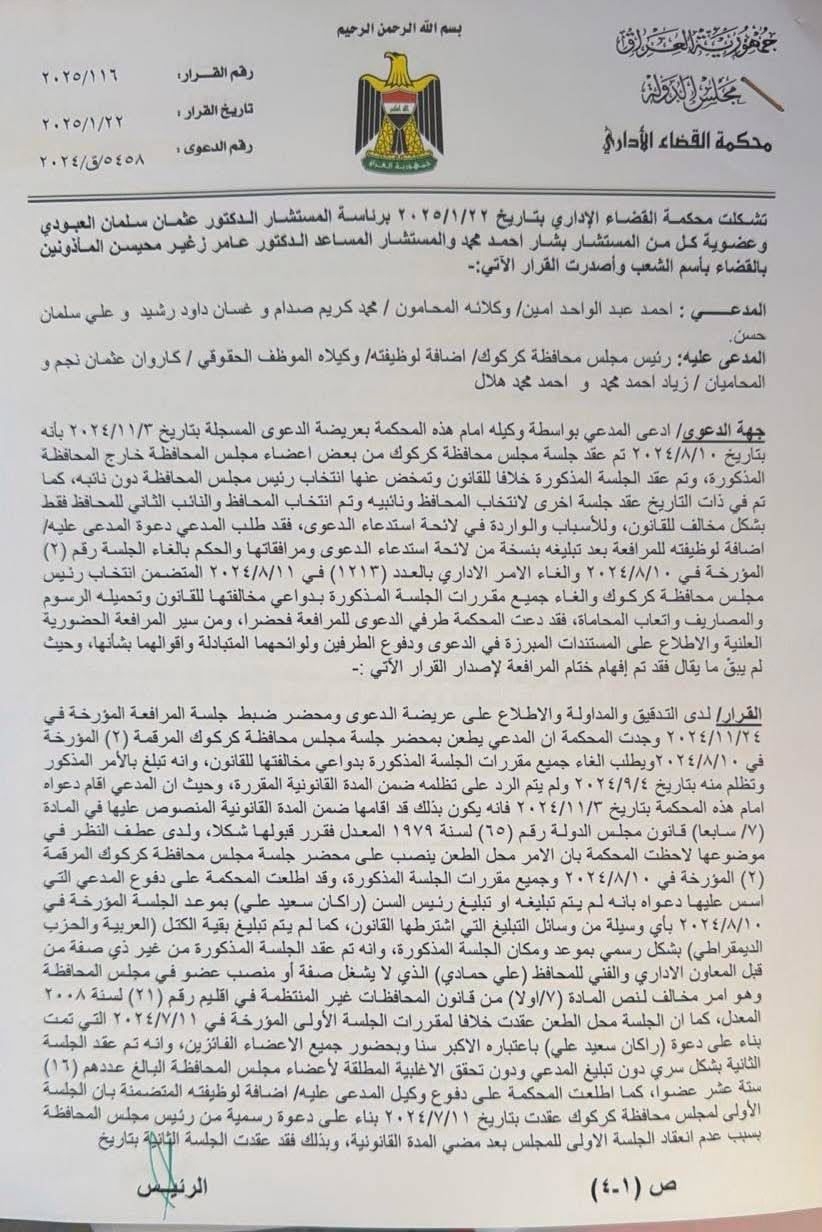 بسم الله الرحمن الرحيم
جمهورية العراق
مجلس الدولة
محكمة القضاء الأداري
رقم القرار: ٢٠٢٥/١١٦
تاريخ القرار : ٢٠٢٥/١/٢٢
رقم الدعوى : ٥٤٥٨/ق/٢٠٢٤
جمهورية العراق
تشكلت محكمة القضاء الإداري بتاريخ ٢٠٢٥/١/٢٢ برئاسة المستشار الدكتور عثمان سلمان العبودي
وعضوية كل من المستشار بشار احمد محمد والمستشار المساعد الدكتور عامر زغير محيسن المأذونين
بالقضاء بأسم الشعب وأصدرت القرار الآتي:-
المدعـــــي : احمد عبد الواحد امين/ وكلائه المحامون / محمد كريم صدام و غسان داود رشيد و علي سلمان
حسن.
المدعى عليه: رئيس مجلس محافظة كركوك/ اضافة لوظيفته/ وكيلاه الموظف الحقوقي / كاروان عثمان نجم و
المحاميان / زياد احمد محمد و احمد محمد هلال
جهة الدعوى/ ادعى المدعي بواسطة وكيله امام هذه المحكمة بعريضة الدعوى المسجلة بتاريخ ٢٠٢٤/١١/٣ بأنه
بتاريخ ٢٠٢٤/٨/١٠ تم عقد جلسة مجلس محافظة كركوك من بعض اعضاء مجلس المحافظة خارج المحافظة
المذكورة، وتم عقد الجلسة المذكورة خلافا للقانون وتمخض عنها انتخاب رئيس مجلس المحافظة دون نائبه، كما
تم في ذات التاريخ عقد جلسة اخرى لانتخاب المحافظ ونائبيه وتم انتخاب المحافظ والنائب الثاني للمحافظ فقط
بشكل مخالف للقانون، وللأسباب والواردة في لائحة استدعاء الدعوى، فقد طلب المدعي دعوة المدعى عليه/
اضافة لوظيفته للمرافعة بعد تبليغه بنسخة من لائحة استدعاء الدعوى ومرافقاتها والحكم بالغاء الجلسة رقم (٢)
المؤرخة في ٢٠٢٤/٨/١٠ والغاء الامر الاداري بالعدد (١٢١٣) في ٢٠٢٤/٨/١١ المتضمن انتخاب رئيس
مجلس محافظة كركوك والغاء جميع مقررات الجلسة المذكورة بدواعي مخالفتها للقانون وتحميله الرسوم
والمصاريف واتعاب المحاماة، فقد دعت المحكمة طرفي الدعوى للمرافعة فحضرا، ومن سير المرافعة الحضورية
العلنية والاطلاع على المستندات المبرزة في الدعوى ودفوع الطرفين ولوائحهما المتبادلة واقوالهما بشأنها، وحيث
لم يبقَ ما يقال فقد تم إفهام ختام المرافعة لإصدار القرار الآتي :-
القرار/ لدى التدقيق والمداولة والاطلاع على عريضة الدعوى ومحضر ضبط جلسة المرافعة المؤرخة في
٢٠٢٤/١١/٢٤ وجدت المحكمة ان المدعي يطعن بمحضر جلسة مجلس محافظة كركوك المرقمة (٢) المؤرخة
في ٢٠٢٤/٨/١٠ويطلب الغاء جميع مقررات الجلسة المذكورة بدواعي مخالفتها للقانون، وانه تبلغ بالأمر المذكور
وتظلم منه بتاريخ ٢٠٢٤/٩/٤ ولم يتم الرد على تظلمه ضمن المدة القانونية المقررة، وحيث ان المدعي اقام دعواه
امام هذه المحكمة بتاريخ ٢٠٢٤/١١/٣ فانه يكون بذلك قد اقامها ضمن المدة القانونية المنصوص عليها في المادة
(٧/ سابعا) قانون مجلس الدولة رقم (٦٥) لسنة ١٩٧٩ المعدل فقرر قبولها شكلا، ولدى عطف النظر في
موضوعها لاحظت المحكمة بان الامر محل الطعن ينصب على محضر جلسة مجلس محافظة كركوك المرقمة
(٢) المؤرخة في ٢٠٢٤/٨/١٠ وجميع مقررات الجلسة المذكورة، وقد اطلعت المحكمة على دفوع المدعي التي
اسس عليها دعواه بانه لم يتم تبليغه او تبليغ رئيس السن (راكان سعيد علي) بموعد الجلسة المؤرخة في
٢٠٢٤/٨/١٠ بأي وسيلة من وسائل التبليغ التي اشترطها القانون، كما لم يتم تبليغ بقية الكتل (العربية والحزب
الديمقراطي) بشكل رسمي بموعد ومكان الجلسة المذكورة، وانه تم عقد الجلسة المذكورة من غير ذي صفة من
قبل المعاون الاداري والفني للمحافظ (علي حمادي) الذي لا يشغل صفة أو منصب عضو في مجلس المحافظة
وهو امر مخالف لنص المادة (٧/اولا) من قانون المحافظات غير المنتظمة في اقليم رقم (٢١) لسنة ٢٠٠٨
المعدل، كما ان الجلسة محل الطعن عقدت خلافا لمقررات الجلسة الأولى المؤرخة في ٢٠٢٤/٧/١١ التي تمت
بناء على دعوة (راكان سعيد علي) باعتباره الاكبر سنا وبحضور جميع الاعضاء الفائزين، وانه تم عقد الجلسة
الثانية بشكل سري دون تبليغ المدعي ودون تحقق الاغلبية المطلقة لأعضاء مجلس المحافظة البالغ عددهم (١٦)
ستة عشر عضوا، كما اطلعت المحكمة على دفوع وكيل المدعى عليه/ اضافة لوظيفته المتضمنة بان الجلسة
الأولى لمجلس محافظة كركوك عقدت بتاريخ ٢٠٢٤/٧/١١ بناء على دعوة رسمية من رئيس مجلس المحافظة
بسبب عدم انعقاد الجلسة الاولى للمجلس بعد مضي المدة القانونية، وبذلك فقد عقدت الجلسة الثانية بتاريخ
الرئيس
ص (١-٤)